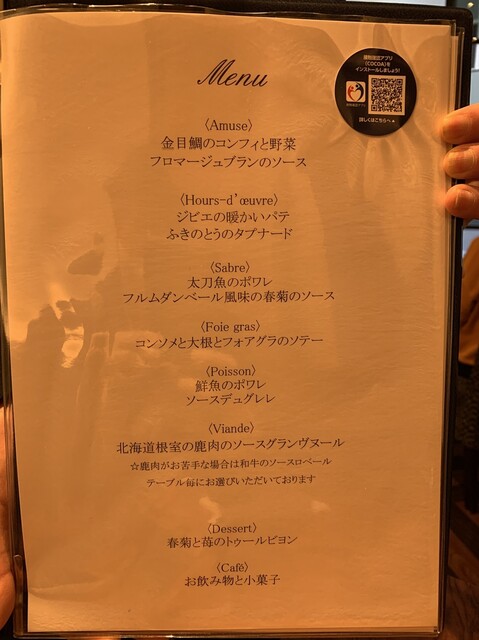 Menu
接触確認アプリ
(COCOA)を
インストールしましょう!
詳しくはこちらへ
〈Amuse〉
金目鯛のコンフィと野菜
フロマージュブランのソース
〈Hours-d'œuvre〉
ジビエの暖かいパテ
ふきのとうのタプナード
〈Sabre〉
太刀魚のポワレ
フルムダンベール風味の春菊のソース
〈Foie gras〉
コンソメと大根とフォアグラのソテー
〈Poisson〉
鮮魚のポワレ
ソースデュグレレ
〈Viande〉
北海道根室の鹿肉のソースグランヴヌール
☆鹿肉がお苦手な場合は和牛のソースロベール
テーブル毎にお選びいただいております
〈Dessert〉
春菊と苺のトゥールビヨン
〈Café〉
お飲み物と小菓子